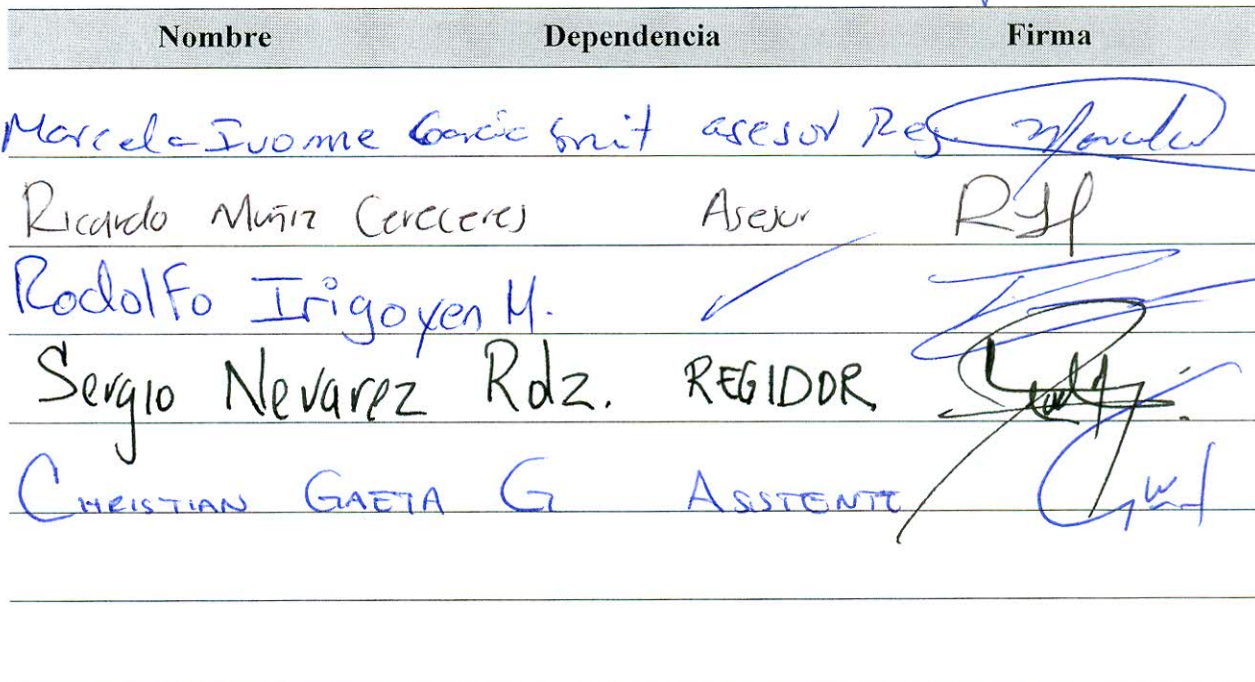 Nombre Dependencia Firma
Marcela Ivonne García Smit asesor Reg
Ricardo Muñiz Cereceres Asesor
Rodolfo Irigoyen M.
Sergio Nevarez Rdz. REGIDOR
CHRISTIAN GAETA G ASISTENTE